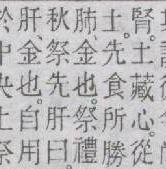 土藏心從
土。先食所勝
肺金也。祭禮
秋祭先肝曰
肝金也自用
於中央土祭